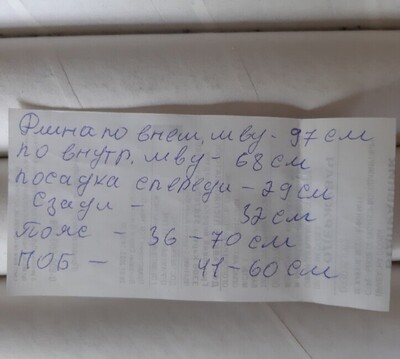 Длина по внеш. шву - 97 см
по внутр. шву - 68 см
посадка спереди - 29 см
сзади - 32 см
Пояс - 36 - 70 см
ПОБ - 41 - 60 см